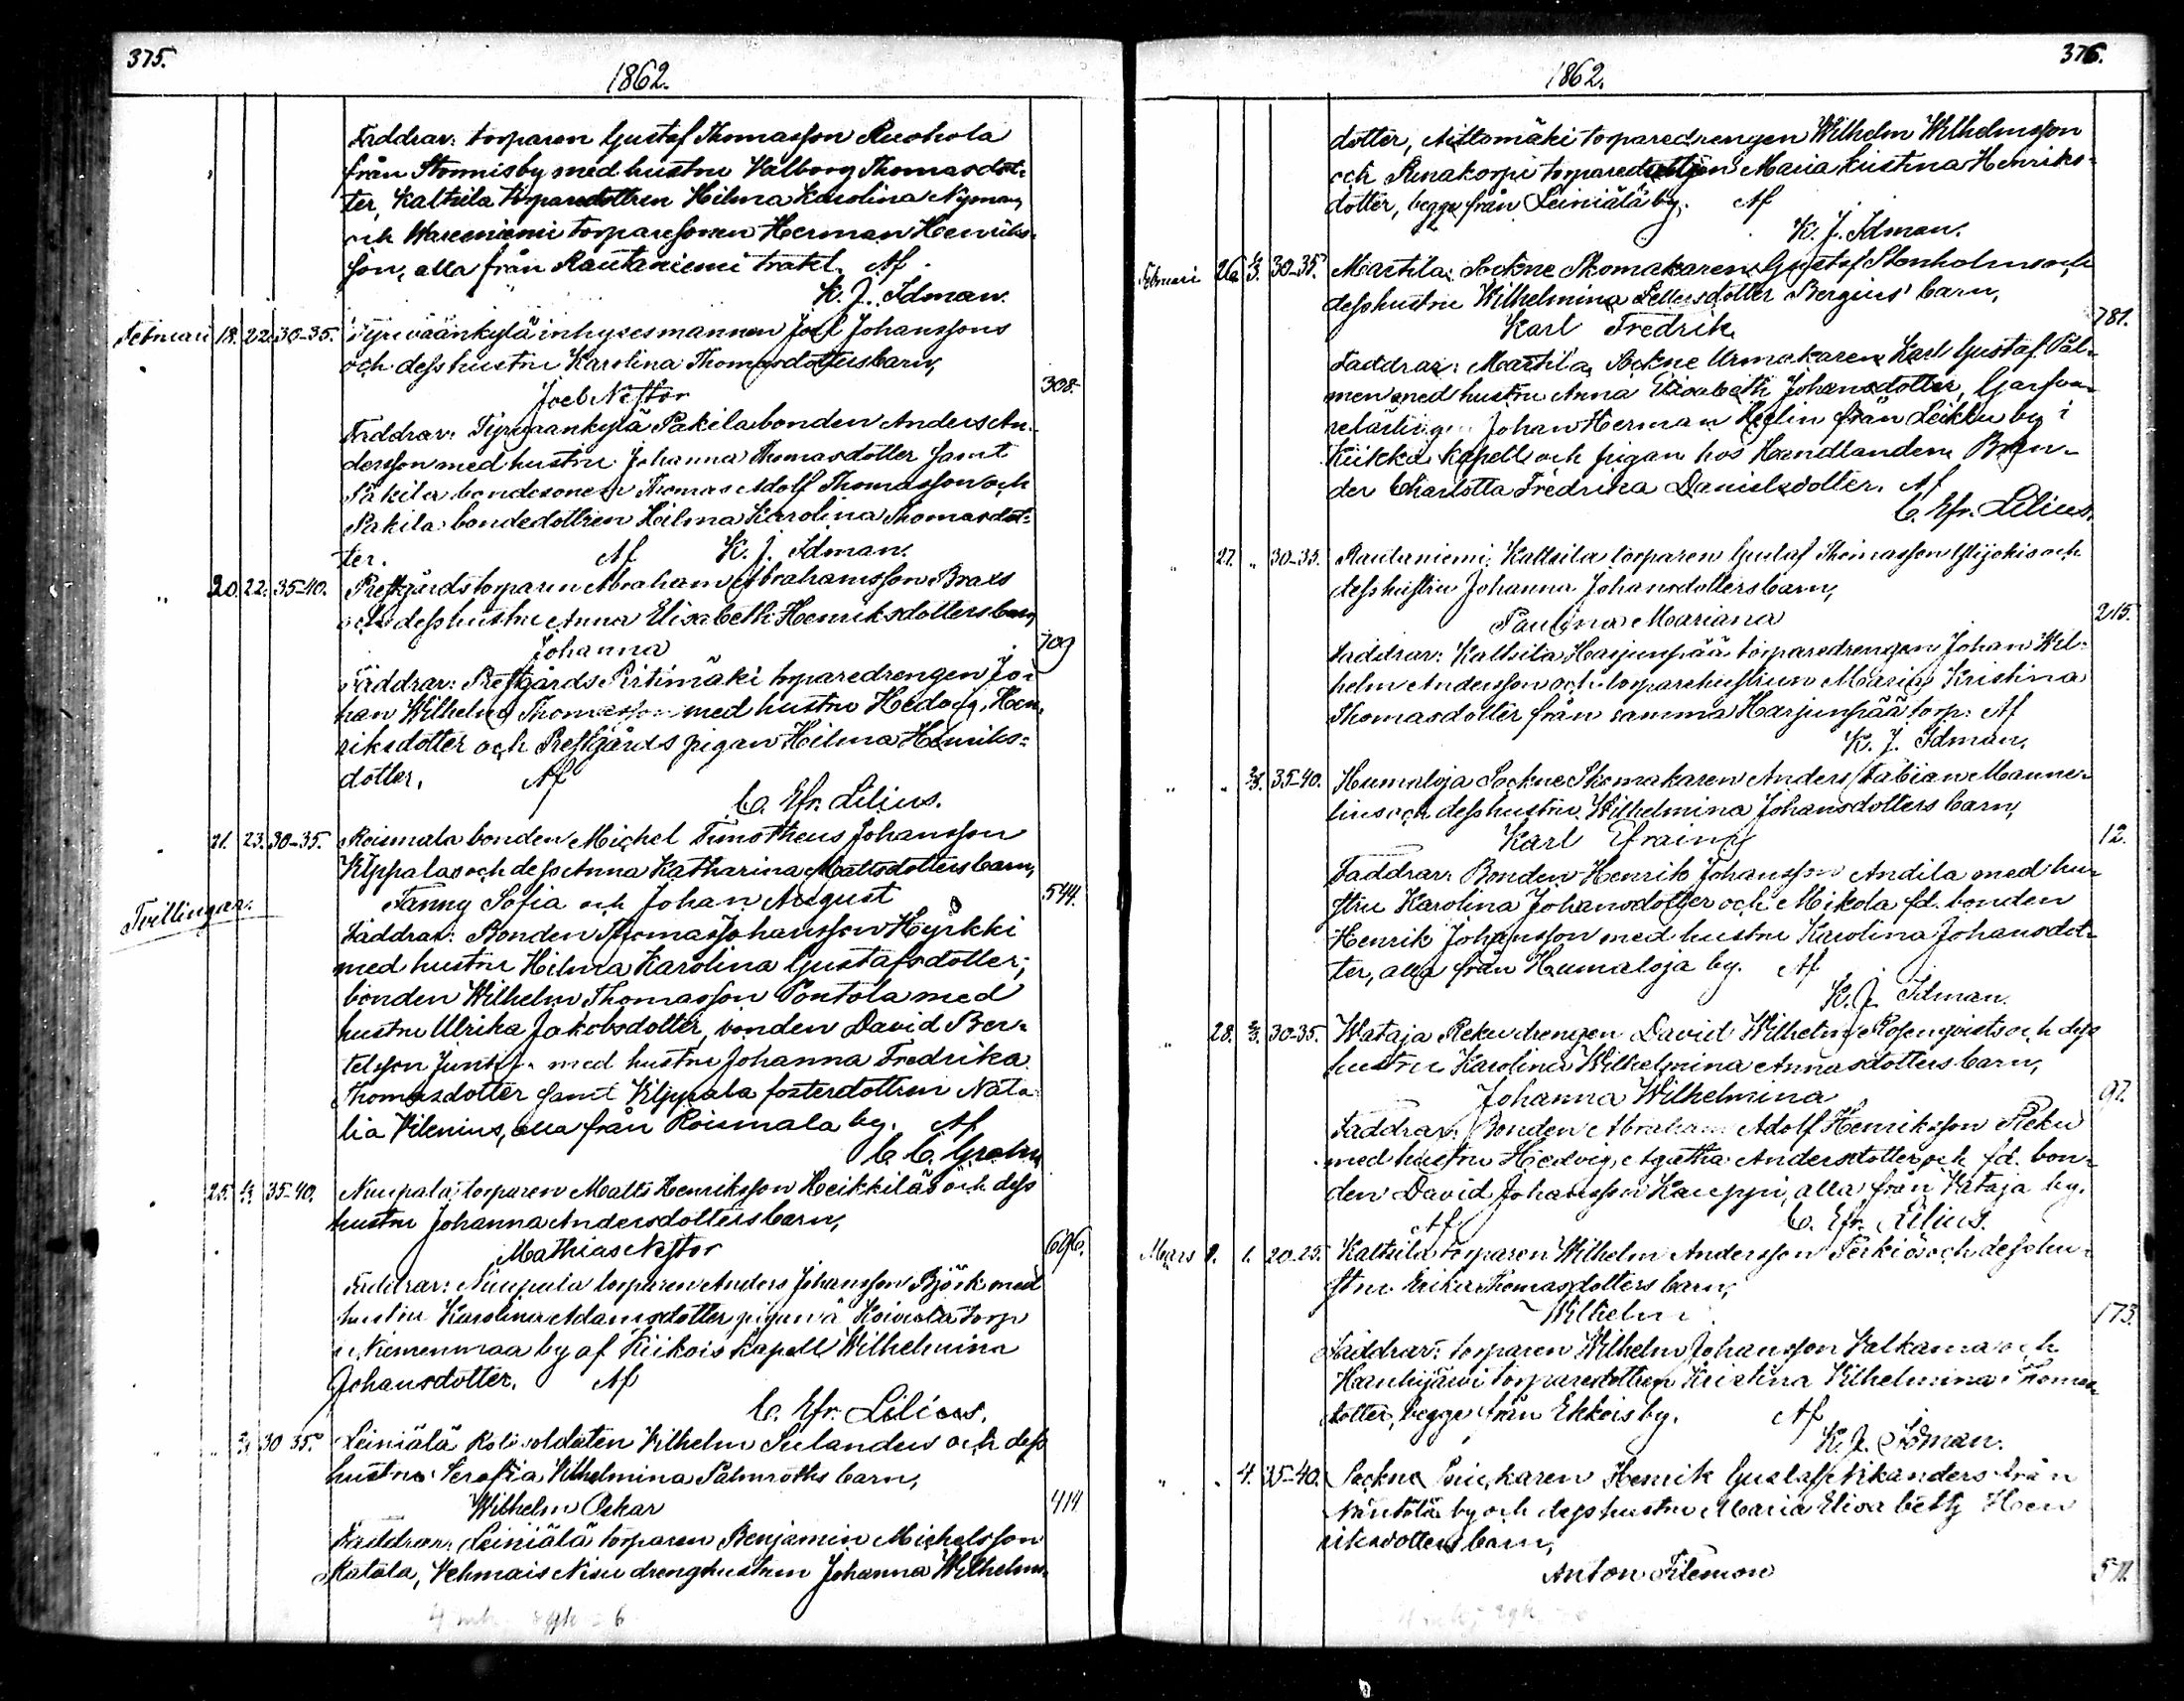 375.
1862.
Faddrar: torparen Gustaf Thomasson Ruohola
från Stormisby med hustru Valborg Thomasdot-
ter, Kaltsila torparedottren Hilma Karolina Nyman,
och Wareniemi torparesonen Herman Henriks-
son, alla från Rautaniemi trakt. Af
K. J. Idman.
Februari 18. 22. 30-35. Tyrväänkylä inhysesmannen Joel Johanssons
och dess hustru Karolina Thomasdotters barn,
Joel Nestor 308.
Faddrar: Tyrväänkylä Pakila bonden Anders An-
dersson med hustru Johanna Thomasdotter samt
Pakila bondesonen Thomas Adolf Thomasson och
Pakila bondedottren Hilma Karolina Thomasdot-
ter. Af K. J. Idman.
" 20. 22. 35-40. Prestgårds torparen Abraham Abrahamsson Braxs
och dess hustru Anna Elisabeth Henriksdotters barn,
Johanna 709
Faddrar: Prestgårds Pirtimäki torparedrengen Jo-
han Wilhelm Thomasson med hustru Hedvig Hen-
riksdotter och Prestgårds pigan Hilma Henriks-
dotter. Af
C. Efr. Lilius.
21. 23. 30-35. Roismala bonden Michel Timotheus Johansson
Kilppalas och dess Anna Katharina Mattsdotters barn,
Fanny Sofia och Johan August 544.
Tvillingar.
Faddrar: Bonden Thomas Johansson Hyrkki
med hustru Hilma Karolina Gustafsdotter;
bonden Wilhelm Thomasson Pontola med
hustru Ulrika Jakobsdotter, bonden David Ber-
telsson med hustru Johanna Fredrika
Thomasdotter samt Kilppala fosterdottren Nata-
lia Vilenius, alla från Roismala by. Af
C. C. Grahn
25. 1/3. 35-40. Nuupala torparen Matts Henriksson Heikkiläs och dess
hustru Johanna Andersdotters barn,
Mathias Nestor 696.
Faddrar: Nuupala torparen Anders Johansson Björk med
hustru Karolina Adamsdotter pigan å Koivula torp
i Niemenmaa by af Kiikois kapell Wilhelmina
Johansdotter. Af
C. Efr. Lilius.
" 30-35. Leiniälä Rote soldaten Wilhelm Selanders och dess
hustru Serafia Wilhelmina Palmroths barn,
Wilhelm Oskar 414
Faddrar: Leiniälä torparen Benjamin Michelsson
Ratala, Vehmais Nisu drenghustrun Johanna Wilhelms-
376.
1862.
dotter, Aittomäki torparedrengen Wilhelm Wilhelmsson
och torparedottren Maria Kristina Henriks-
dotter, begge från Leiniälä by. Af
K. J. Idman.
Februari 26. 1/3. 30-35. Martila Sockne Skomakaren Gustaf Stenholms och
dess hustru Wilhelmina Bergius' barn,
Karl Fredrik 781.
Faddrar: Martila Sockne Urmakaren Karl Gustaf Pal-
men med hustru Anna Elisabeth Johansdotter, Garfva-
relärlingen Johan Herman Heglin från Leikku by i
Kiikka kapell och pigan hos Handlanden Bren-
der Charlotta Fredrika Danielsdotter. Af
C. Efr. Lilius.
" 27. " 30-35. Rautaniemi Kaltsila torparen Gustaf Thomasson Ylijokis och
dess hustru Johanna Johansdotters barn,
Paulina Mariana 215.
Faddrar: Kaltsila Harjunpää torparedrengen Johan Wil-
helm Andersson och torparehustrun Maria Kristina
Thomasdotter från samma Harjunpää torp. Af
K. J. Idman.
" " 2/3. 35-40. Humaloja Sockne Skomakaren Anders Fabian Manne-
lius och dess hustru Wilhelmina Johansdotters barn,
Karl Efraim 12.
Faddrar: Bonden Henrik Johansson Andila med hu-
stru Karolina Johansdotter och Mikola fd. bonden
Henrik Johansson med hustru Karolina Johansdot-
ter, alla från Humaloja by. Af
K. J. Idman.
" 28. 2/3. 30-35. Wataja Reku drengen David Wilhelm Rosenqvists och dess
hustru Karolina Wilhelmina Annasdotters barn,
Johanna Wilhelmina 97.
Faddrar: Bonden Abraham Adolf Henriksson Reku
med hustru Hedvig Agatha Andersdotter och fd. bon-
den David Johansson Kauppi, alla från Wataja by.
Af C. Efr. Lilius.
Mars 1. 20-25. Kaltsila torparen Wilhelm Andersson Perkiös och dess hu-
stru Erika Thomasdotters barn,
Wilhelm 173.
Faddrar: torparen Wilhelm Johansson Valkama och
Hanhijärvi torparedottren Kristina Vilhelmina Thomas-
dotter, begge från Ekkois by. Af
K. J. Idman.
" " 4. 35-40. Sockne Henrik Gustaf Nikanders från
Näntölä by och dess hustru Maria Elisa beth Hen
riksdotters barn,
Anton Filemon 511.